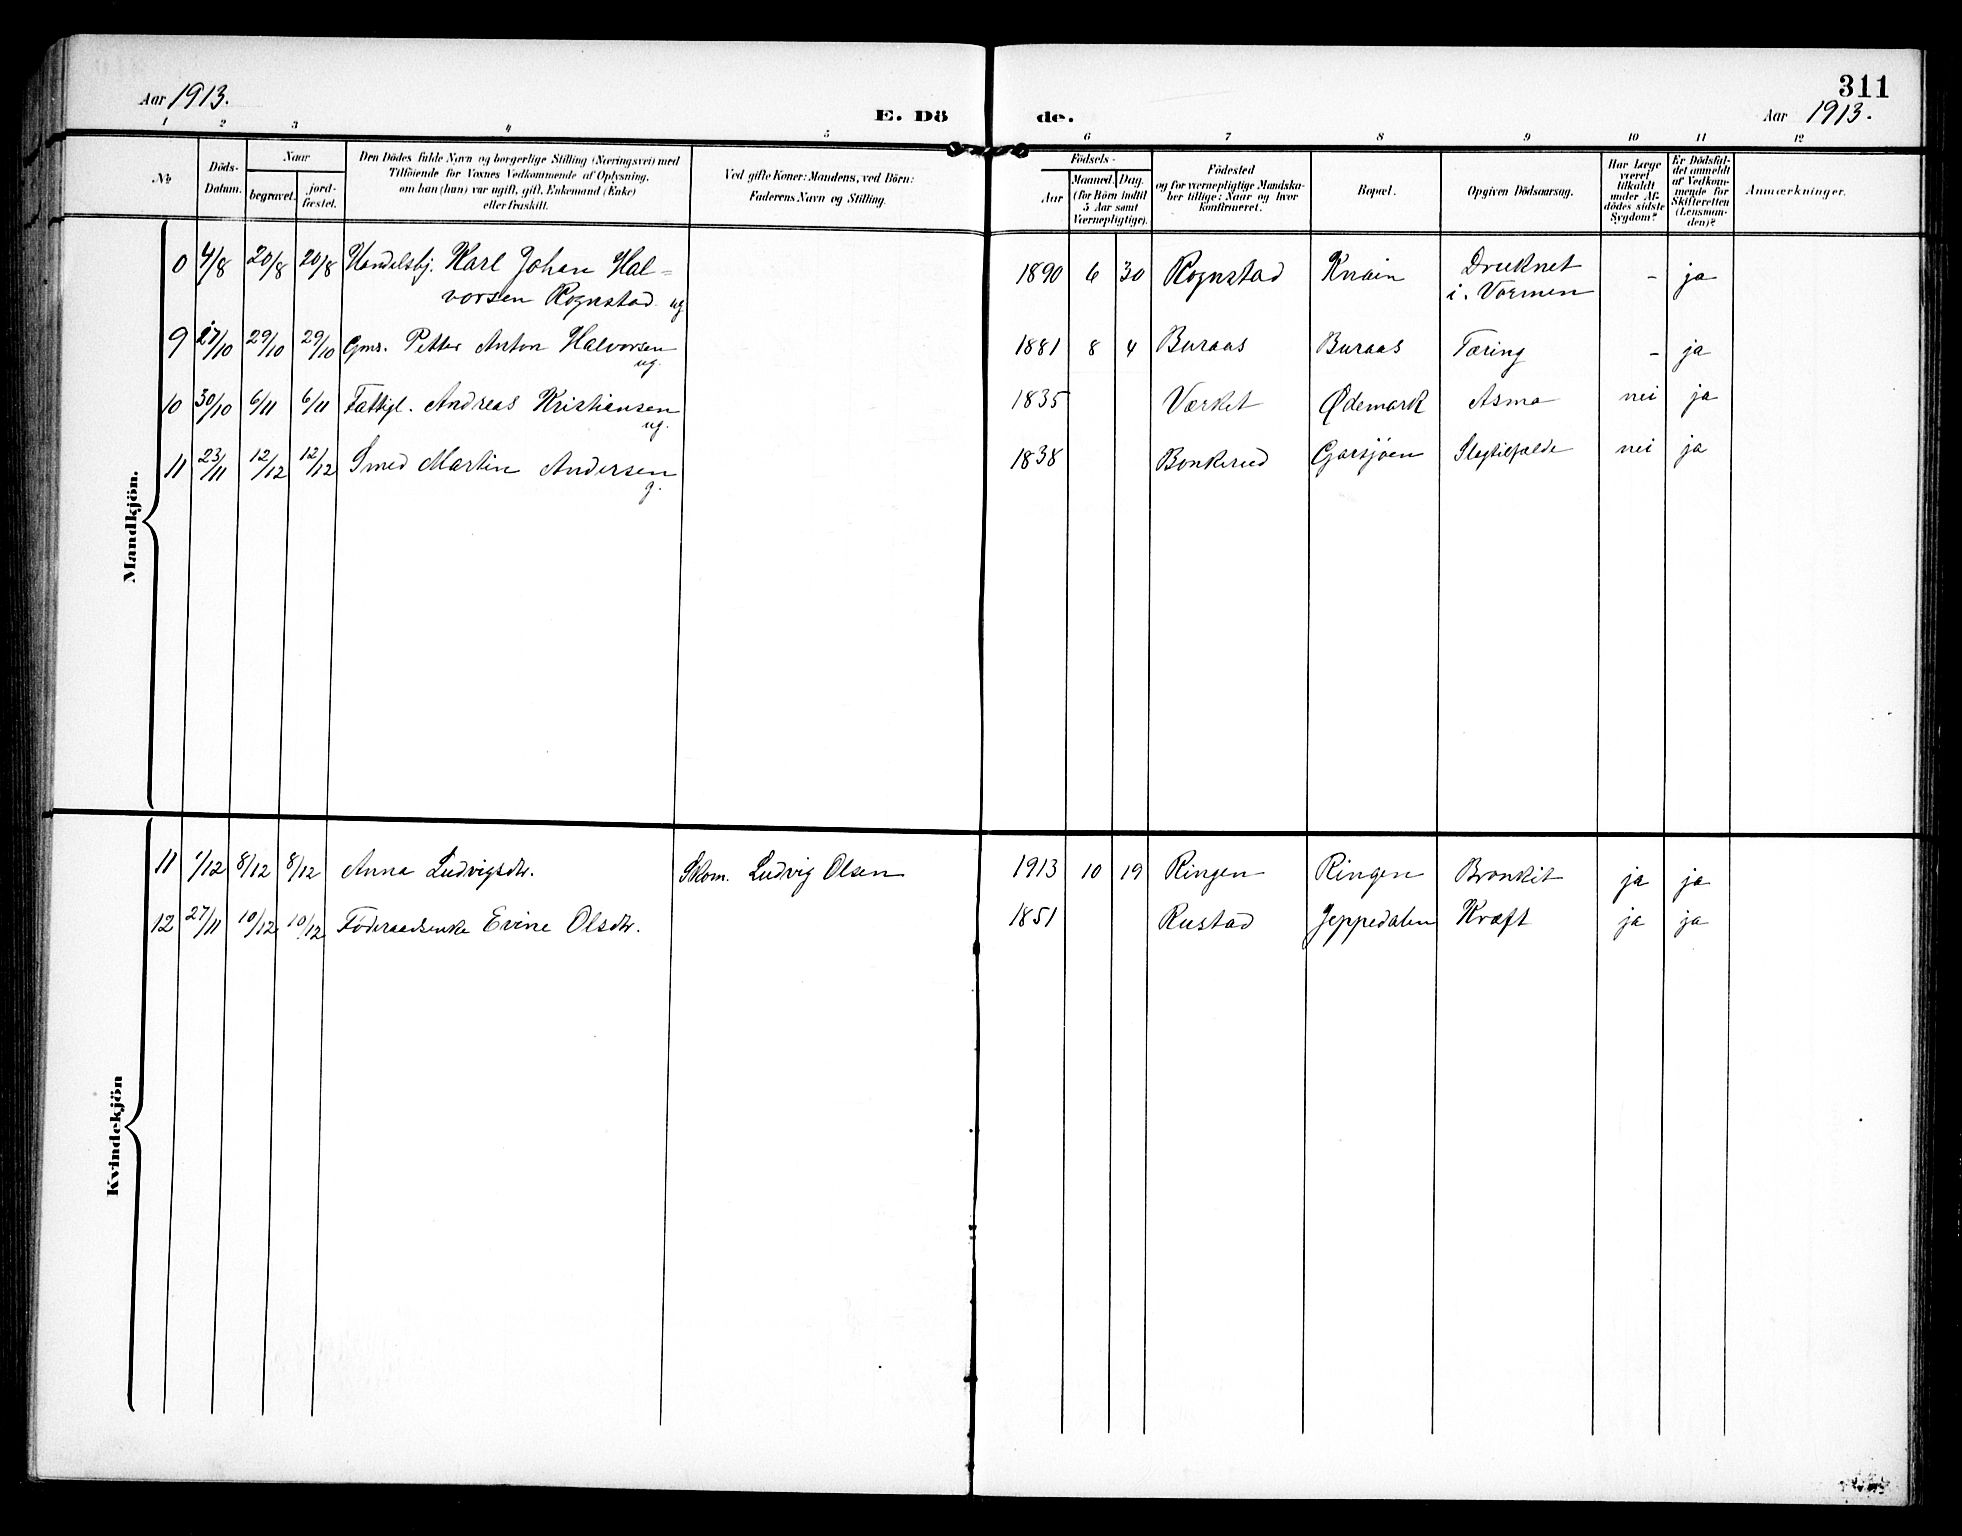 311
Aar 1913.
E. Dö de.
Aar 1913.
1 2 3 4 5 6 7 8 9 10 11 12
№
Döds-
Datum.
Naar
begravet.
jord-
fæstet.
Den Dödes fulde Navn og borgerlige Stilling (Næringsvei) med
Tilföiende for Voxnes Vedkommende af Oplysning,
om han (hun) var ugift, gift, Enkemand (Enke)
eller fraskilt.
Ved gifte Koner: Mandens, ved Börn:
Faderens Navn og Stilling.
Födsels-
Aar
Maaned. Dag.
(for Börn indtil
5 Aar samt
Værnepligtige).
Födested
og for værnepligtige Mandska-
ber tillige: Naar og hvor
konfirmeret.
Bopæl.
Opgiven Dödsaarsag.
Har Læge
været
tilkaldt
under Af-
dödes sidste
Sygdom?
Er Dödsfal-
det anmeldt
af Vedkom-
mende for
Skifteretten
(Lensman-
den)?
Anmærkninger.
Mandkjön.
0 4/8 20/8 20/8 Handelsbj. Karl Johan Hal- 1890 6 30 Rognstad Knain Druknet - ja
vorsen Rognstad ug i. Vormen
9 27/10 29/10 29/10 Gmr. Petter Anton Halvorsen 1881 8 4 Buraas Buraas Tæring - ja
ug.
10 30/10 6/11 6/11 Fattigl. Andreas Kristiansen 1835 Værket Ødemark Asma nei ja
ug.
11 23/11 12/12 12/12 Smed Martin Andersen 1838 Bonkerud Garsjøen Slagtilfælde nei ja
g.
Kvindekjön
11 1/12 8/12 8/12 Anna Ludvigsdtr. Skom. Ludvig Olsen 1913 10 19 Ringen Ringen Bronkit ja ja
12 27/11 10/12 10/12 Føderaadsenke Evine Olsdtr. 1851 Rustad Jeppedalen Kræft ja ja